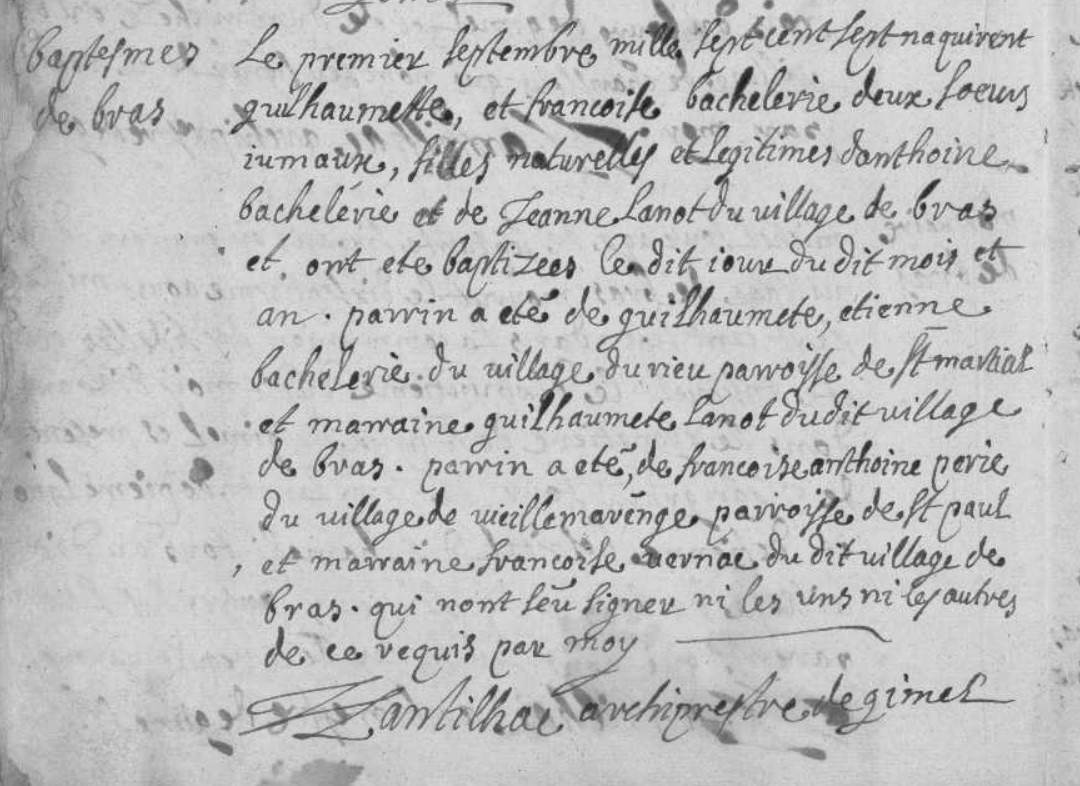 baptesmes
de bras
Le premier septembre mille sept cent sept naquirent
guilhaumette, et francoise bachelerie deux soeurs
iumaux, filles naturelles et legitimes danthoine
bachelerie et de Jeanne Lanot du village de bras
et ont eté baptizees le dit iour du dit mois et
an. parrin a eté de guilhaumete, etienne
bachelerie du village du rieu parroisse de st martial
et marraine guilhaumete Lanot du dit village
de bras. parrin a eté, de francoise anthoine perie
du village de vieillemarenge parroisse de st paul
, et marraine francoise vernac du dit village de
bras. qui nont seu signer ni les uns ni les autres
de ce requis par moy
archiprestre de gimel